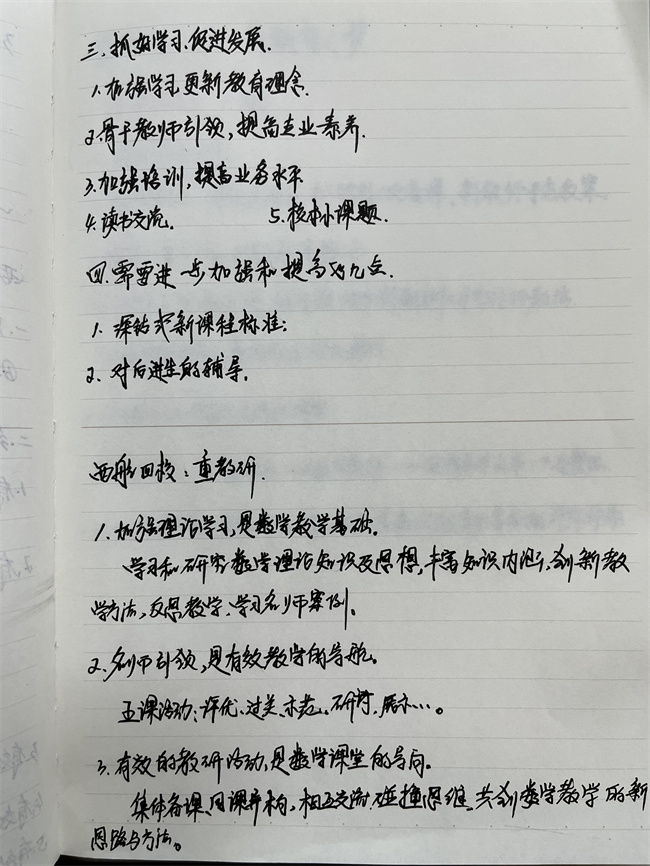 三.抓好学习、促进发展.
1.加强学习更新教育理念.
2.骨干教师引领,提高专业素养.
3.加强培训,提高业务水平
4.读书交流. 5.校本小课题.
四.需要进一步加强和提高的几点.
1.深钻式新课程标准;
2.对后进生的辅导.
西航四校:重教研.
1.加强理论学习,是数学教学基础。
学习和研究数学理论知识及思想,丰富知识内涵,创新教
学方法,反思教学、学习名师案例。
2.名师引领,是有效教学的导航。
五课活动:评优、过关、示范、研讨、展示…。
3.有效的教研活动,是数学课堂的导向。
集体备课,同课异构,相互交流,碰撞思维,共创数学教学的新
思路与方法。